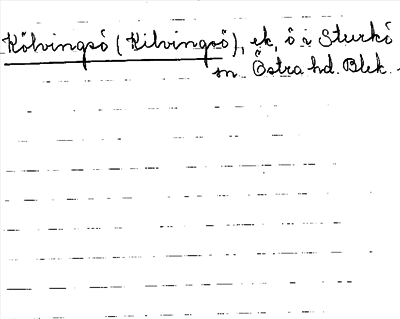 Kölvingsö (Kilvingsö), ek, ö i Sturkö
sn Östra hd. Blek.